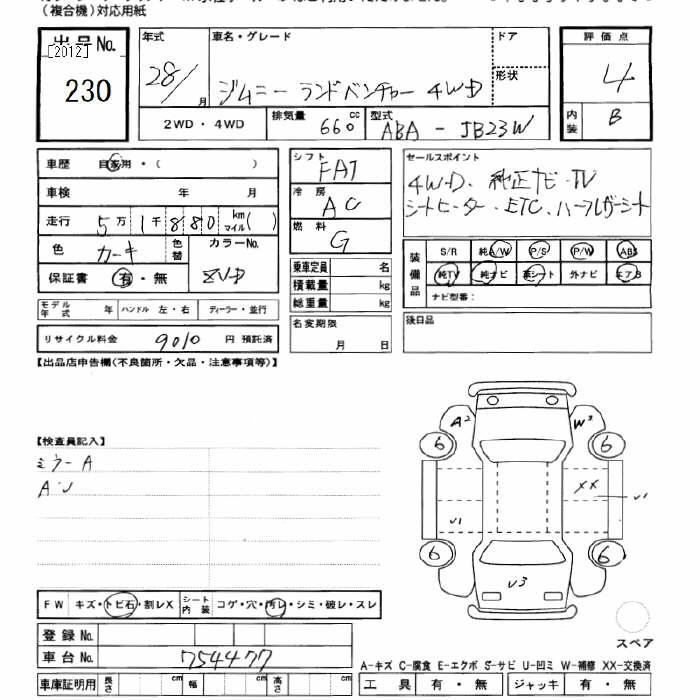 (複合機)対応用紙
出品No.
[2012]
230
年式
28/
月
車名・グレード
ジムニー ランドベンチャー 4WD
ドア
形状
評価点
4
内装
B
2WD・4WD
排気量
660
cc
型式
ABA - JB23W
車歴 自家用・( )
車検 年 月
走行 5万1千880 km マイル( )
色 カーキ 色替 カラーNo.
保証書 有・無 ZVD
モデル年式 年 ハンドル 左・右 ディーラー・並行
リサイクル料金 9010 円 預託済
シフト
FAT
冷房
AC
燃料
G
乗車定員 名
積載量 kg
総重量 kg
名変期限
月 日
セールスポイント
4WD. 純正ナビ・TV
シートヒーター. ETC. ハーフレザーシート
装備品
S/R 純A/W P/S P/W ABS
純TV 純ナビ 革シート 外ナビ エアB
ナビ型番:
後日品
【出品店申告欄(不良箇所・欠品・注意事項等)】
【検査員記入】
ミラーA
A・U
A2
W3
6
6
XX
U1
U1
6
6
U3
スペア
FW キズ・トビ石・割レX シート内装 コゲ・穴・汚レ・シミ・破レ・スレ
登録No.
車台No. 754477
車庫証明用 長さ cm 幅 cm 高さ cm
A-キズ C-腐食 E-エクボ S-サビ U-凹ミ W-補修 XX-交換済
工具 有・無 ジャッキ 有・無